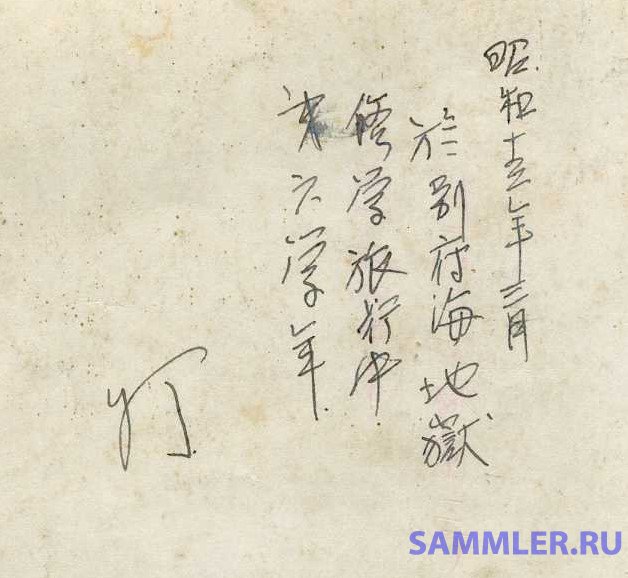 昭和十三年三月
於別府海地獄
修学旅行中
第六学年
SAMMLER.RU